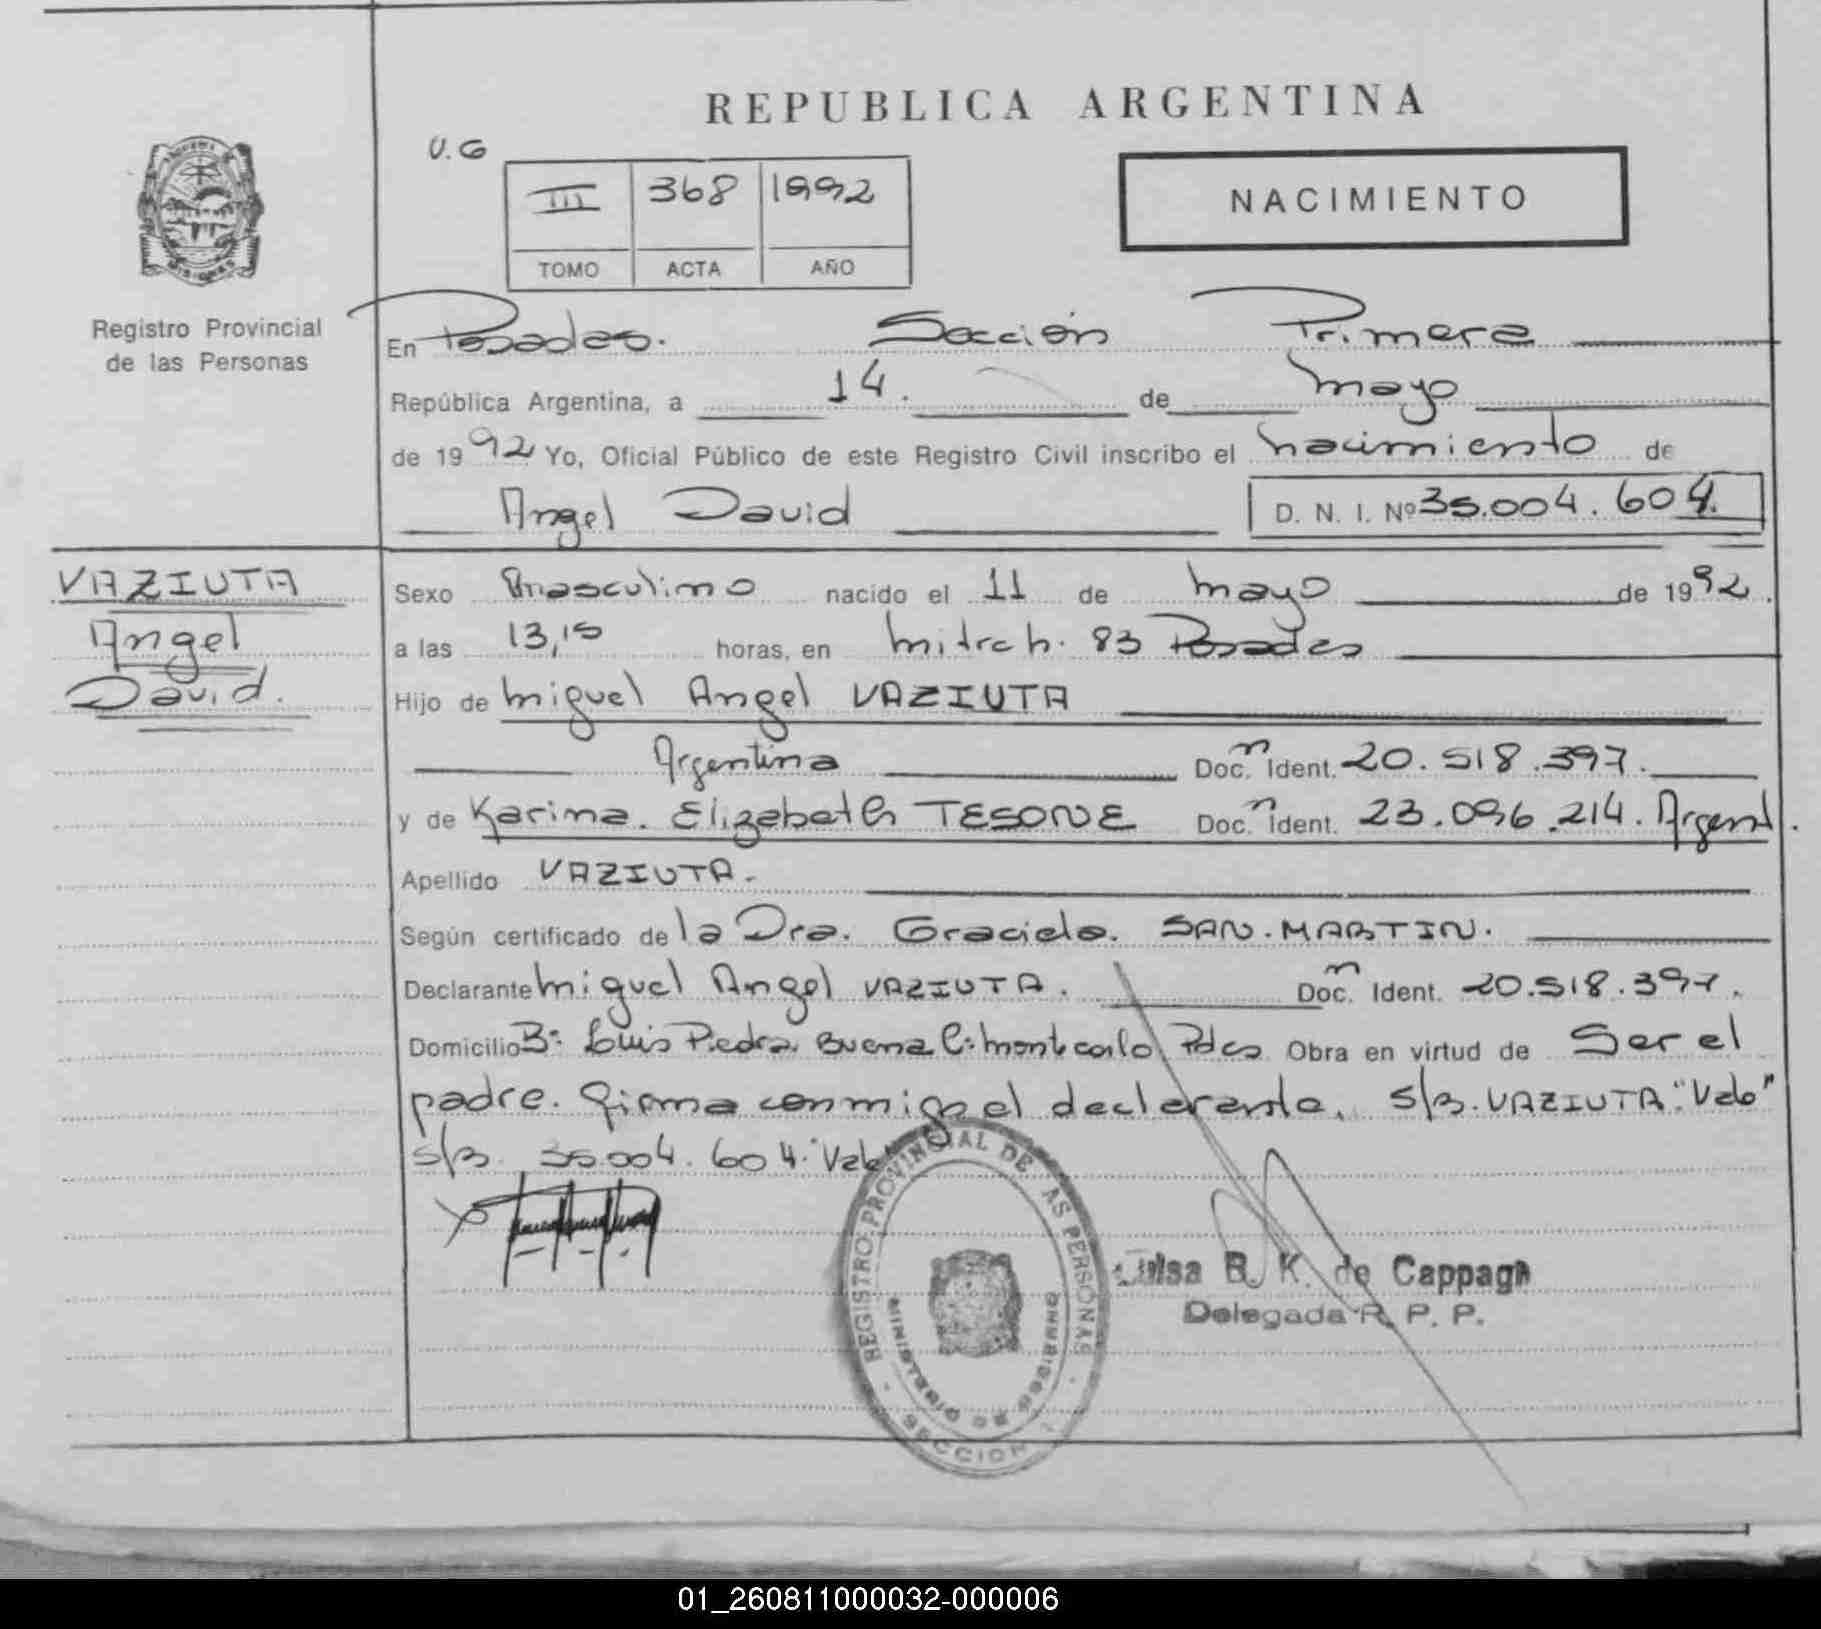 REPUBLICA ARGENTINA
U.G
III 368 1992
TOMO ACTA AÑO
NACIMIENTO
Registro Provincial
de las Personas
En Posadas. Sección Primera
República Argentina, a 14. de mayo
de 1992 Yo, Oficial Público de este Registro Civil inscribo el nacimiento de
Angel David D. N. I. Nº 35.004.604.
VAZIUTA
Angel
David.
Sexo Masculino nacido el 11 de mayo de 1992.
a las 13,15 horas, en mitre h. 83 Posadas
Hijo de Miguel Angel VAZIUTA
Argentina Doc. Ident. 20.518.397.
y de Karina. Elizabeth TESONE Doc. Ident. 23.096.214. Argent.
Apellido VAZIUTA.
Según certificado de la Dra. Graciela. SAN. MARTIN.
Declarante Miguel Angel VAZIUTA. Doc. Ident. 20.518.397.
Domicilio Bº Luis Piedra Buena C: montecarlo Pdas Obra en virtud de Ser el
padre. Firma conmigo el declarante. S/B. VAZIUTA "Vale"
S/B. 35.004.604. "Vale"
REGISTRO PROVINCIAL DE LAS PERSONAS
MINISTERIO DE GOBIERNO
SECCION 1
B. K. de Cappagh
Delegada R. P. P.
01_260811000032-000006